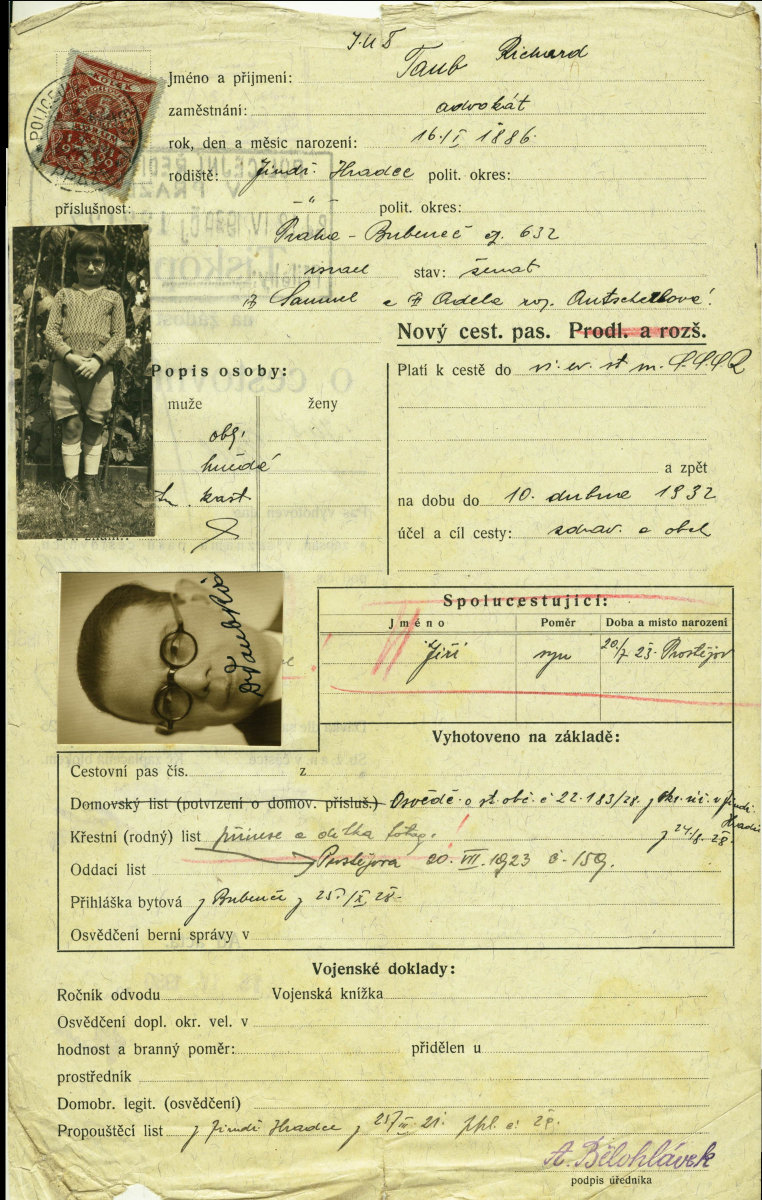 J.U.D
Jméno a přijmení: Taub Richard
zaměstnání: advokát
rok, den a měsíc narození: 16./I. 1886.
rodiště: Jindř. Hradec polit. okres:
příslušnost: –"– polit. okres:
Praha – Bubeneč čj. 632
israel stav: ženat
Samuel a Adela roz.
Nový cest. pas. Prodl. a rozš.
Popis osoby:
muže ženy
obl.
hnědé
kašt.
Platí k cestě do
a zpět
na dobu do 10. dubna 1932
účel a cíl cesty: zdrav. a obch
Dr Taub Rich
Spolucestující:
Jméno Poměr Doba a místo narození
Jiří syn 20/7 23. Prostějov
Vyhotoveno na základě:
Cestovní pas čís. z
Domovský list (potvrzení o domov. přísluš.) Osvědč. o st. obč. č 22.183/28. z okr. úř. v Jindř. Hradci
z 24./8. 28.
Křestní (rodný) list přinese a dítka fotog. !
Oddací list Prostějova 20. VII. 1923 č. 159.
Přihláška bytová z Bubenče z 25./IX 28.
Osvědčení berní správy v
Vojenské doklady:
Ročník odvodu Vojenská knížka
Osvědčení dopl. okr. vel. v
hodnost a branný poměr: přidělen u
prostředník
Domobr. legit. (osvědčení)
Propouštěcí list z Jindř. Hradce z
A. Bělohlávek
podpis úředníka